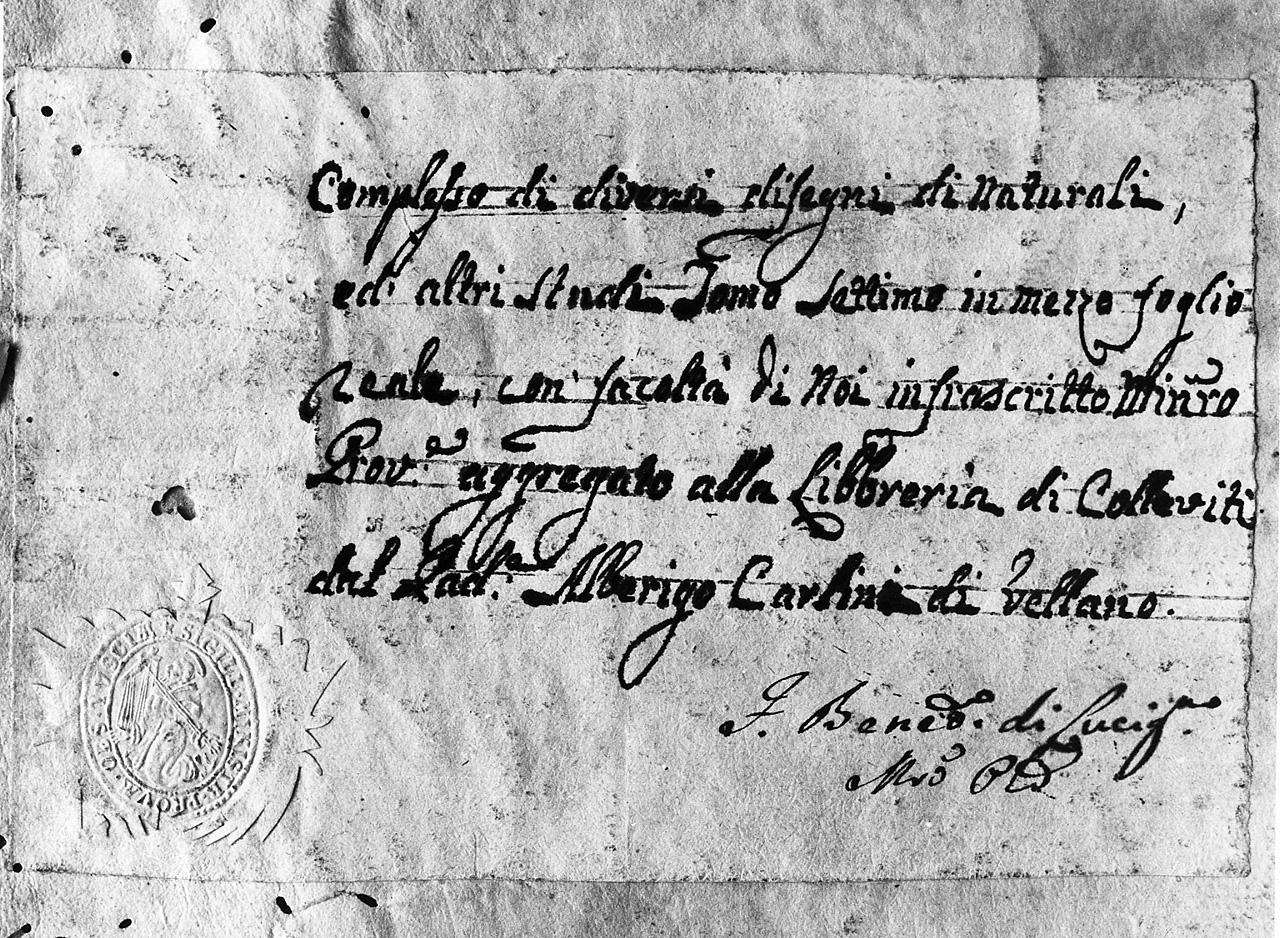 Complesso di diversi disegni di Naturali,
ed altri Studi Tomo Settimo in mezzo foglio
Reale, con facoltà di Noi infrascritto Minrō
Prov.e aggregato alla Libbreria di Colleviti
dal Pad.e Alberigo Carlini di Vellano.
F. Bened.o di Lucig.no
Mrō
SIGILL MINISTR PROVIN OBS